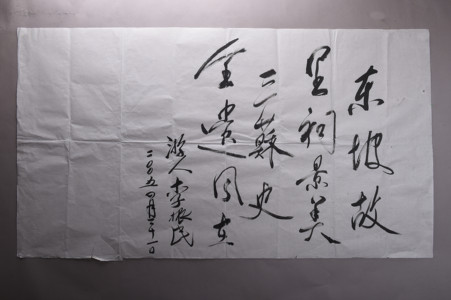 东坡故
里祠景美
三苏史
全赏一同去
游人李振民
二〇〇五四月二十一日